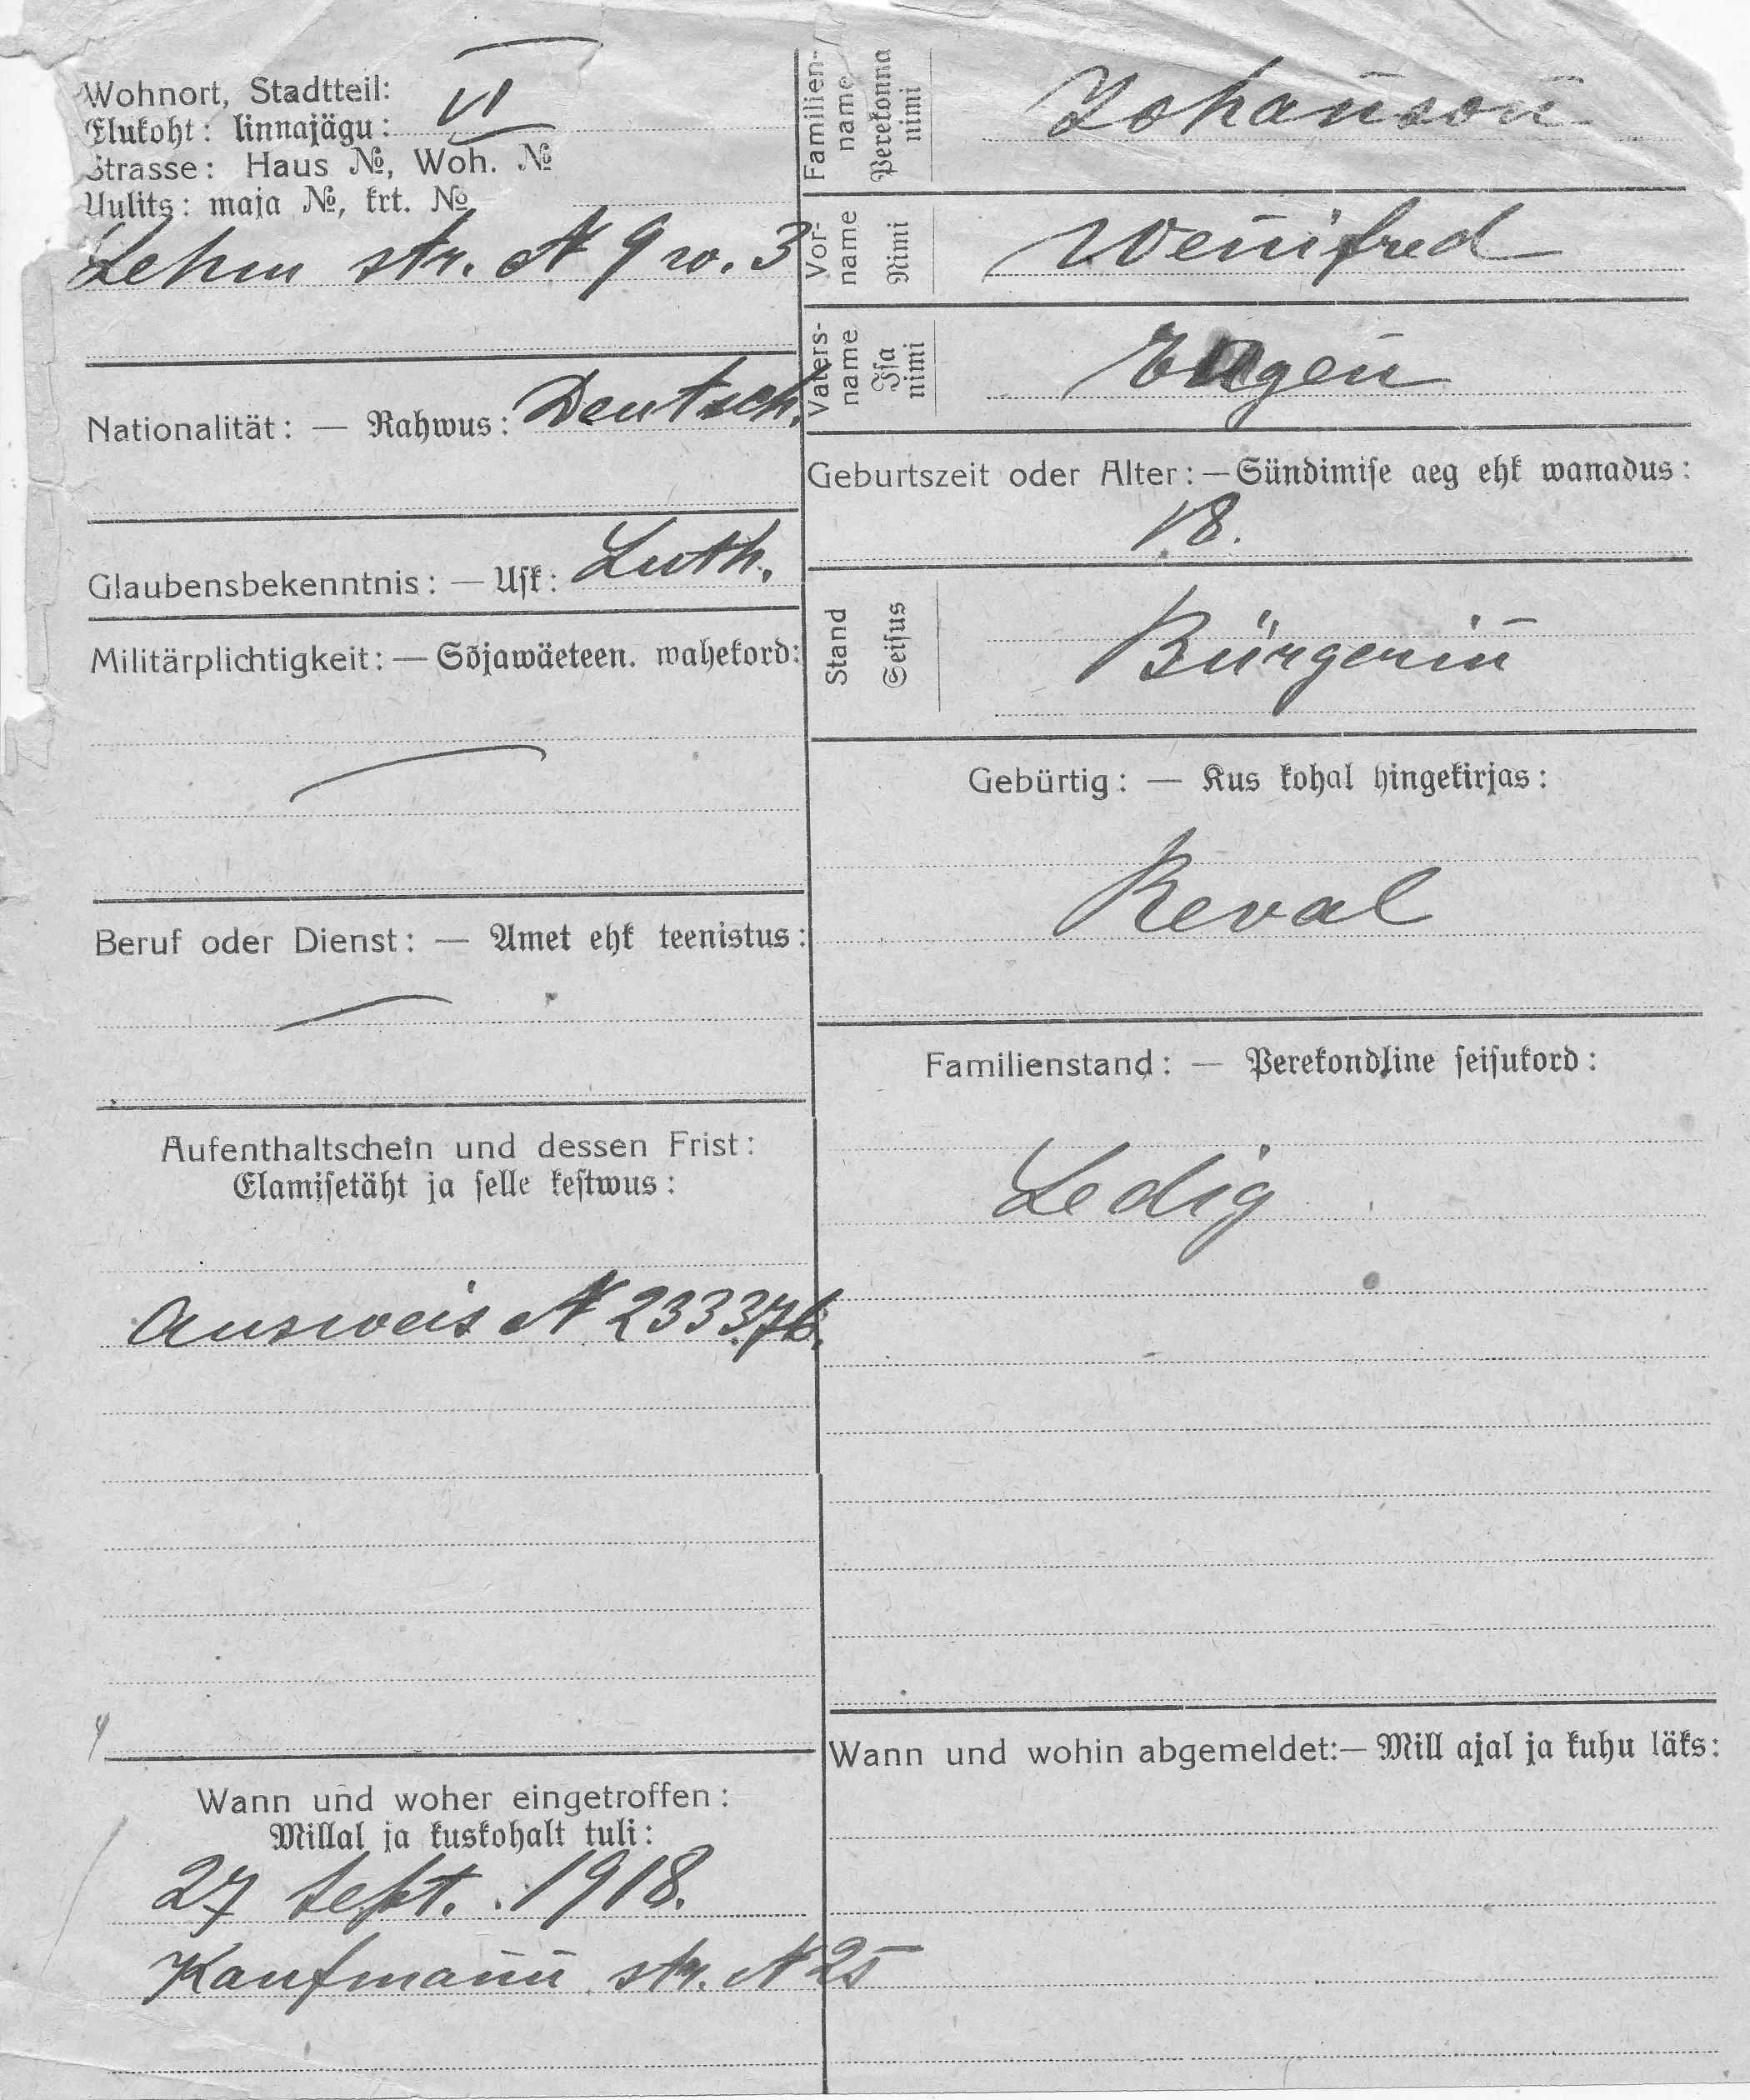 Wohnort, Stadtteil:
Elukoht: linnajägu: VI
Strasse: Haus №, Woh. №
Uulits: maja №, krt. №
Lehm str. № 9 w. 3
Nationalität: — Rahwus: Deutsch.
Glaubensbekenntnis: — Usk: Luth.
Militärplichtigkeit: — Sõjawäeteen. wahekord:
Beruf oder Dienst: — Amet ehk teenistus:
Aufenthaltschein und dessen Frist:
Elamisetäht ja selle kestwus:
Ausweis № 233376.
Wann und woher eingetroffen:
Millal ja kuskohalt tuli:
27 Sept. 1918.
Kaufmann str. № 25
Familien-
name
Perekonna
nimi
Johanson
Vor-
name
Nimi
Wenifred
Vaters-
name
Isa
nimi
Eugen
Geburtszeit oder Alter: — Sündimise aeg ehk wanadus:
18.
Stand
Seisus
Bürgerin
Gebürtig: — Kus kohal hingekirjas:
Reval
Familienstand: — Perekondline seisukord:
Ledig
Wann und wohin abgemeldet: — Mill ajal ja kuhu läks: